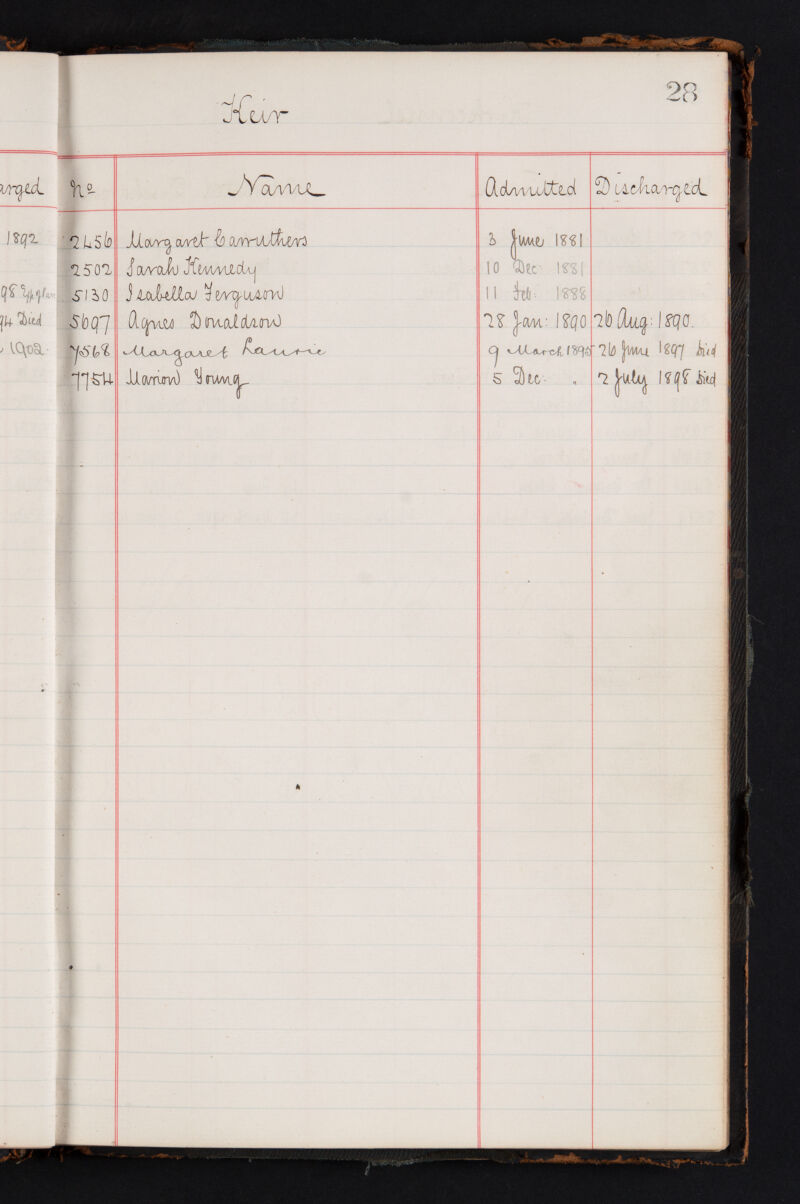 28
Keir
No Name Admitted Discharged
2456 Margaret Carruthers 3 June 1881
2502 Sarah Kennedy 10 Dec: 1881
5130 Isabella Ferguson 11 Feb: 1888
5697 Agnes Donaldson 28 Jan: 1890 26 Aug: 1890.
7568 Margaret Laurie 9 March 1895 26 June 1897 Died
7754 Marion Young 5 Dec. " 2 July 1898 Died
arged
1892
98
94 Died
1902